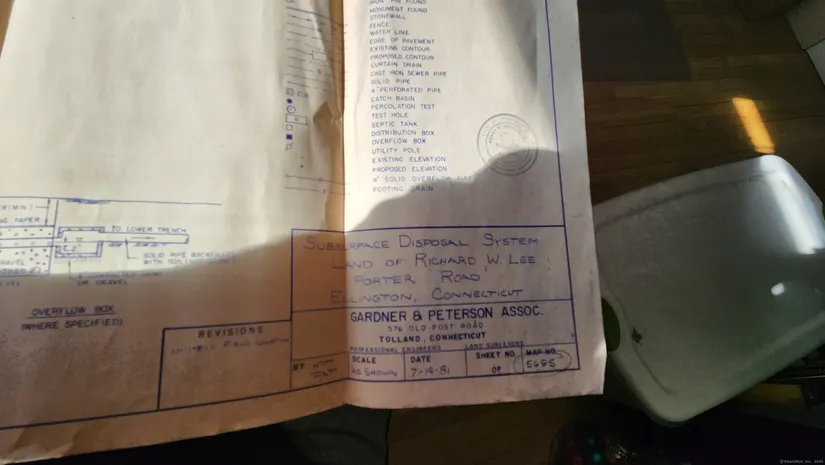 IRON PIN FOUND
MONUMENT FOUND
STONEWALL
FENCE
WATER LINE
EDGE OF PAVEMENT
EXISTING CONTOUR
PROPOSED CONTOUR
CURTAIN DRAIN
CAST IRON SEWER PIPE
SOLID PIPE
4" PERFORATED PIPE
CATCH BASIN
PERCOLATION TEST
TEST HOLE
SEPTIC TANK
DISTRIBUTION BOX
OVERFLOW BOX
UTILITY POLE
EXISTING ELEVATION
PROPOSED ELEVATION
4" SOLID OVERFLOW PIPE
FOOTING DRAIN
PAPER
TO LOWER TRENCH
SOLID PIPE
WITH SOIL
OVERFLOW BOX
(WHERE SPECIFIED)
REVISIONS
SUBSURFACE DISPOSAL SYSTEM
LAND OF RICHARD W. LEE
PORTER ROAD
ELLINGTON, CONNECTICUT
GARDNER & PETERSON ASSOC.
576 OLD POST ROAD
TOLLAND, CONNECTICUT
PROFESSIONAL ENGINEERS LAND SURVEYORS
BY
SCALE
AS SHOWN
DATE
7-14-81
SHEET NO.
OF
MAP NO.
5695